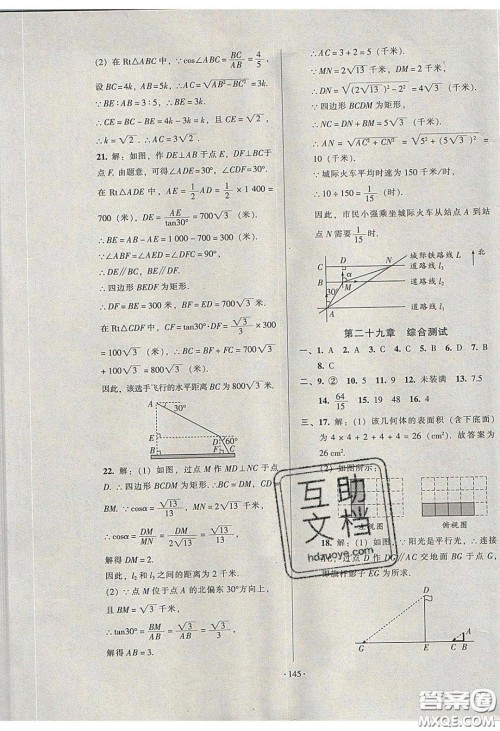 (2) 在 Rt△ABC 中，∵ cos∠ABC = BC/AB = 4/5
设 BC=4k，AB=5k，∴ AC=√(AB²−BC²)=3k.
∵ BE∶AB=3∶5，∴ BE=3k.
∴ CE=BC−BE=4k−3k=k，且 CE=√2.
∴ k=√2. ∴ AC=3√2.
21. 解：如图，作 DE⊥AB 于点 E，DF⊥BC于
点 F. 由题意，可得∠ADE=30°，∠CDF=30°.
在 Rt△DAE 中，AE=1/2 AD=1/2×1 400=
700（米），DE=AE/tan30°=700√3（米）.
∴ BE=AB−AE=1 000−700=300（米）.
∵ ∠ABF=∠AED=∠DFC=90°，
∴ DE∥BC，BE∥DF.
∴ 四边形 BEDF 为矩形.
∴ DF=BE=300 米，BF=DE=700√3 米.
在 Rt△CDF 中，CF=DF·tan30°=√3/3×300
=100√3（米），∴ BC=BF+CF=700√3+
100√3=800√3（米）.
因此，该选手飞行的水平距离 BC 为800√3 米.
A
30°
E
D
60°
B
F C
22. 解：(1) 如图，过点 M 作 MD⊥NC 于点
D. ∴ 四边形 BCDM 为矩形.
∵ cosα=√13/13，MN=2√13（千米），
∴ cosα=DM/MN=DM/2√13=√13/13，
解得 DM=2.
因此，l₂ 和 l₃ 之间的距离为 2 千米.
(2) ∵ 点 M 位于点 A 的北偏东 30°方向上，
且 BM=√3（千米），
∴ tan30°=BM/AB=√3/AB=√3/3，
解得 AB=3.
∴ AC=3+2=5（千米）.
∵ MN=2√13（千米），DM=2（千米），
∴ DN=√((2√13)²−2²)=4√3（千米）.
∵ 四边形 BCDM 为矩形，
∴ NC=DN+BM=5√3（千米）.
∴ AN=√(AC²+CN²)=√(5²+(5√3)²)=
10（千米）.
∵ 城际火车平均时速为 150 千米/时，
∴ 10÷150=1/15（时）.
因此，市民小强乘坐城际火车从站点 A 到站
点 N 需要 1/15 时.
C D N 城际铁路线 L 北
道路线 l₃
B α M 道路线 l₂
30°
A 道路线 l₁
第二十九章 综合测试
一、1. A 2. A 3. C 4. B 5. D 6. D 7. B
8. C
二、9. ② 10. 5 11. 9 12. 未装满 13. 7.5
14. 64/15 15. 19 16. 48 16. 4
三、17. 解：(1) 该几何体的表面积（含下底面）
为 4×4+2+4+4=26（cm²）. 故答案为
26 cm².
(2) 如图所示：
俯视图
18. 解：(1) 如图，∵ 阳光是平行光，∴ 连接
AC，过点 D 作 DG∥AC 交地面 BG 于点 G，
EG 为所求.
D
A
G E C B
· 145 ·
互助文档
hdzuoye.com
答案圈
MXQE.COM